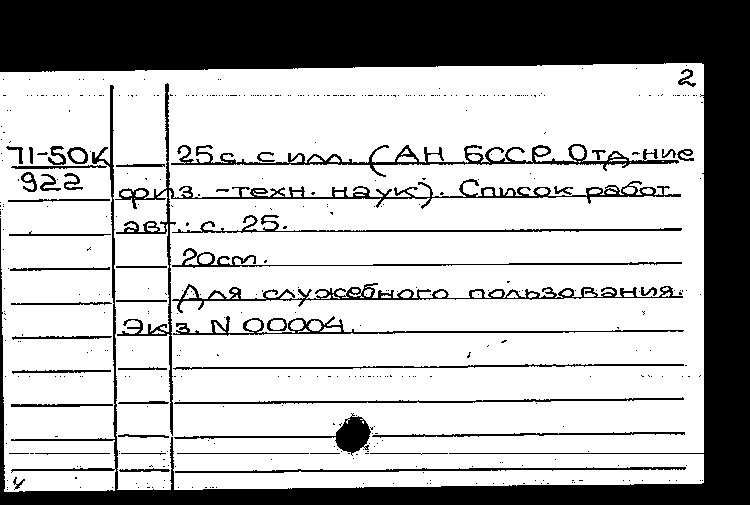 2
71-50К 25с. с илл. (АН БССР. Отд-ние
922 физ.-техн. наук). Список работ
авт.: с. 25.
20см.
Для служебного пользования.
Экз. N 00004.